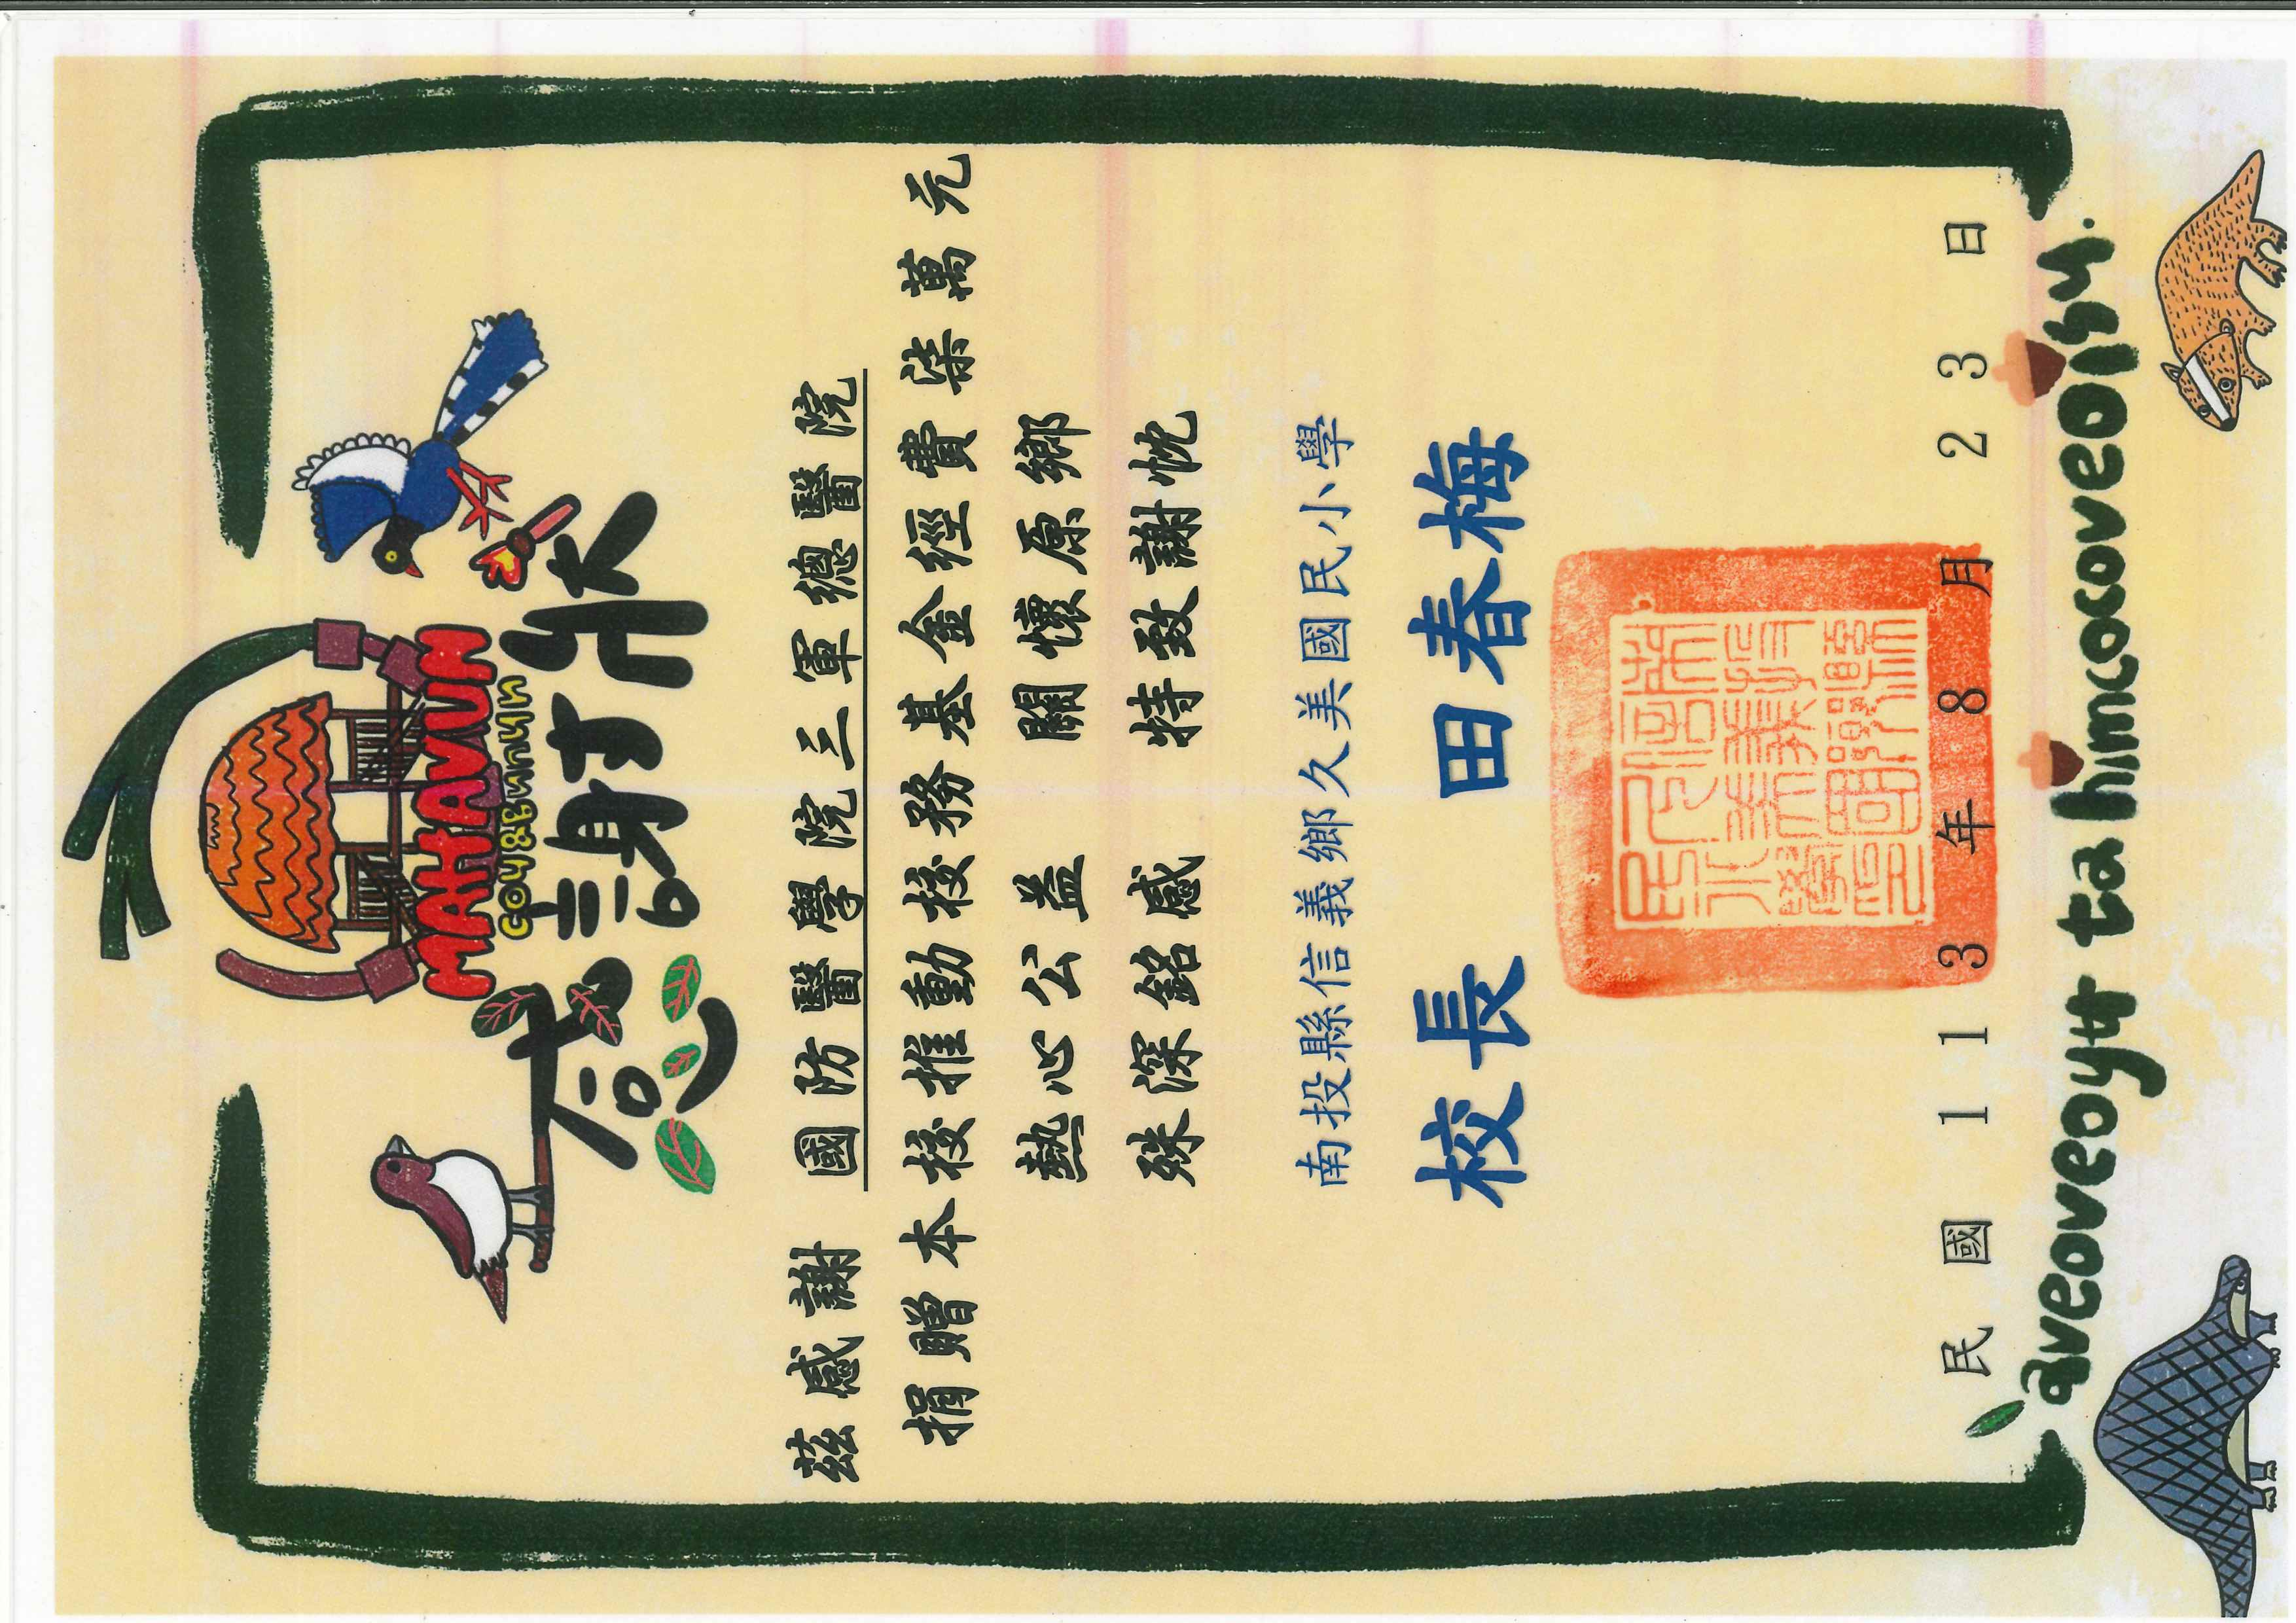 MAHAVUN
感謝狀
茲感謝 國防醫學院三軍總醫院
捐贈本校推動校務基金經費柒萬元
熱心公益 關懷原鄉
殊深銘感 特致謝忱
南投縣信義鄉久美國民小學
校長 田春梅
民國 113 年 8 月 23 日
aveoveoyʉ ta himcocoveoisʉ.